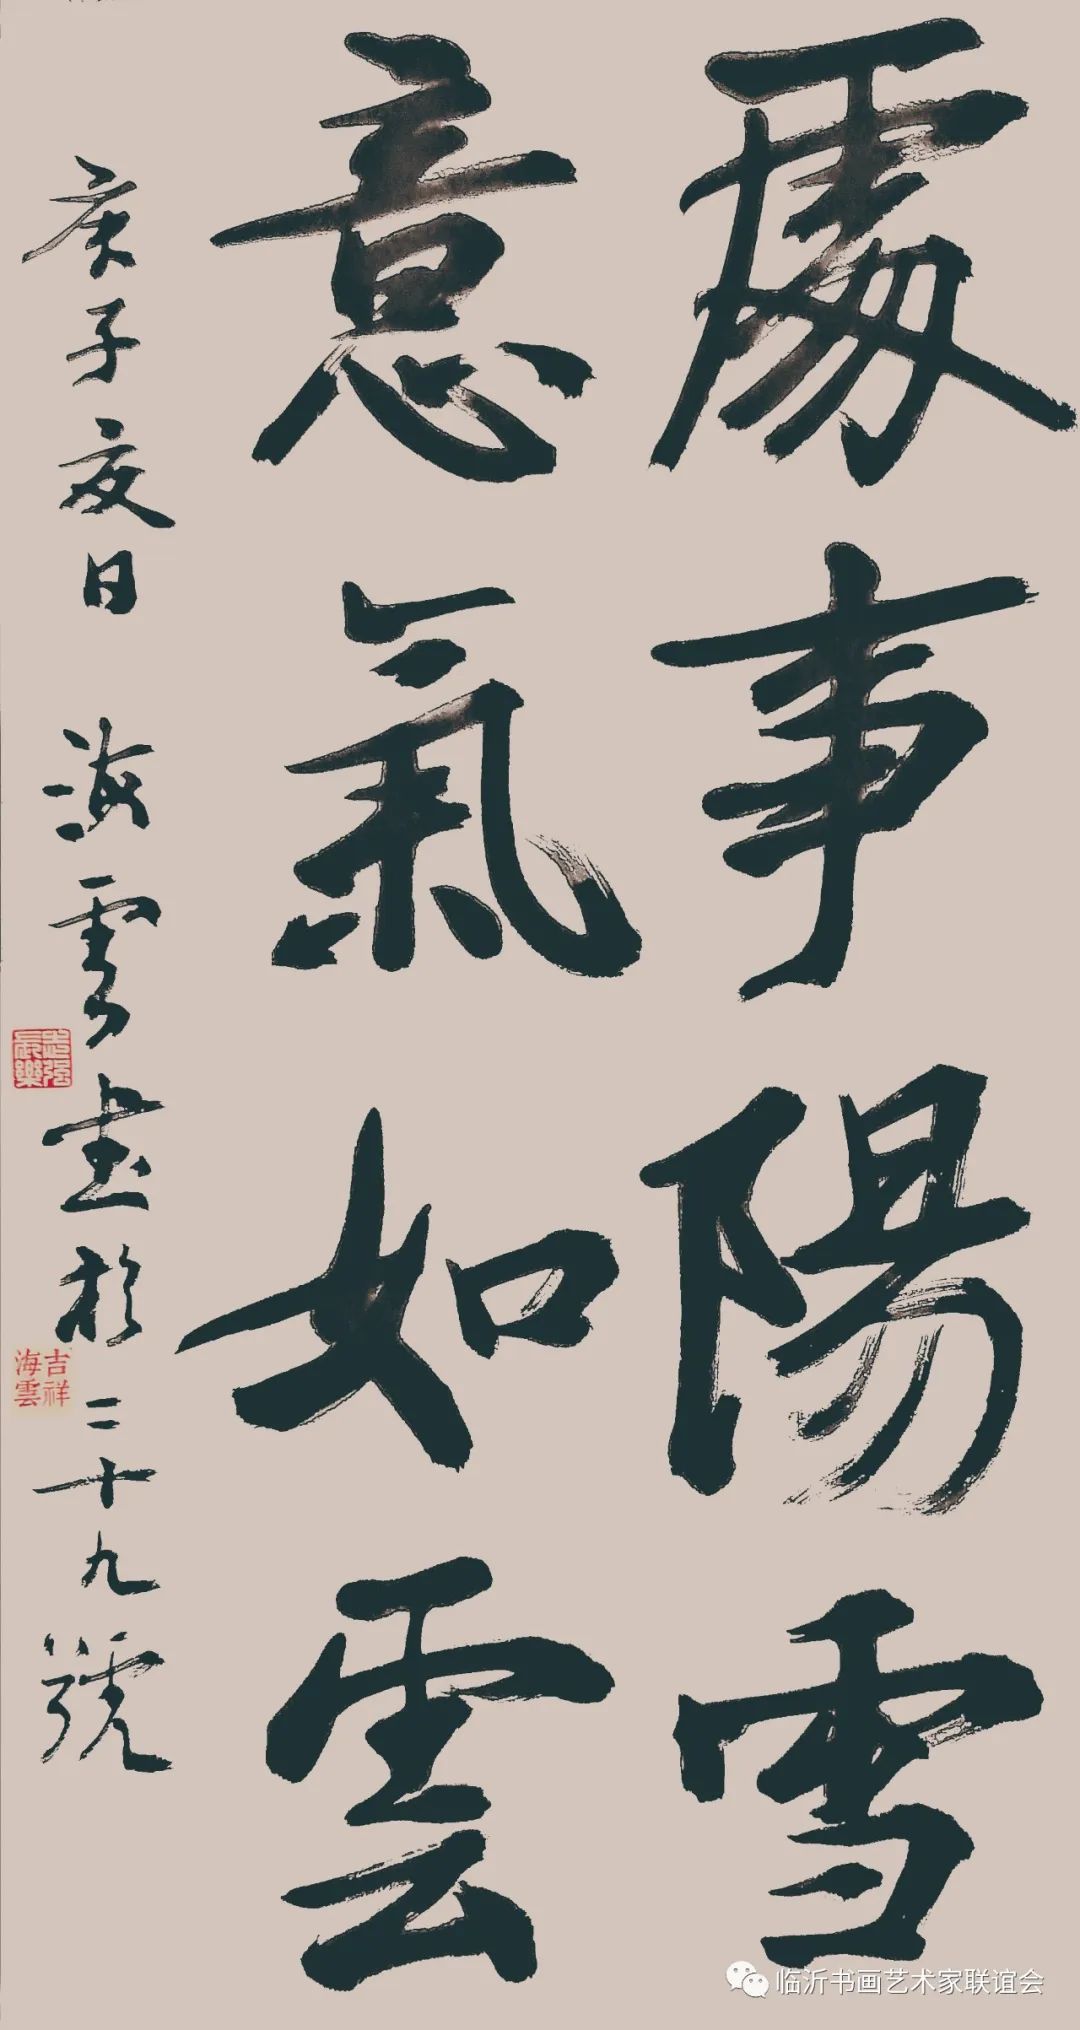 處事陽雪
意氣如雲
庚子夏日 海雲書於二十九號
吉祥
海雲
临沂书画艺术家联谊会